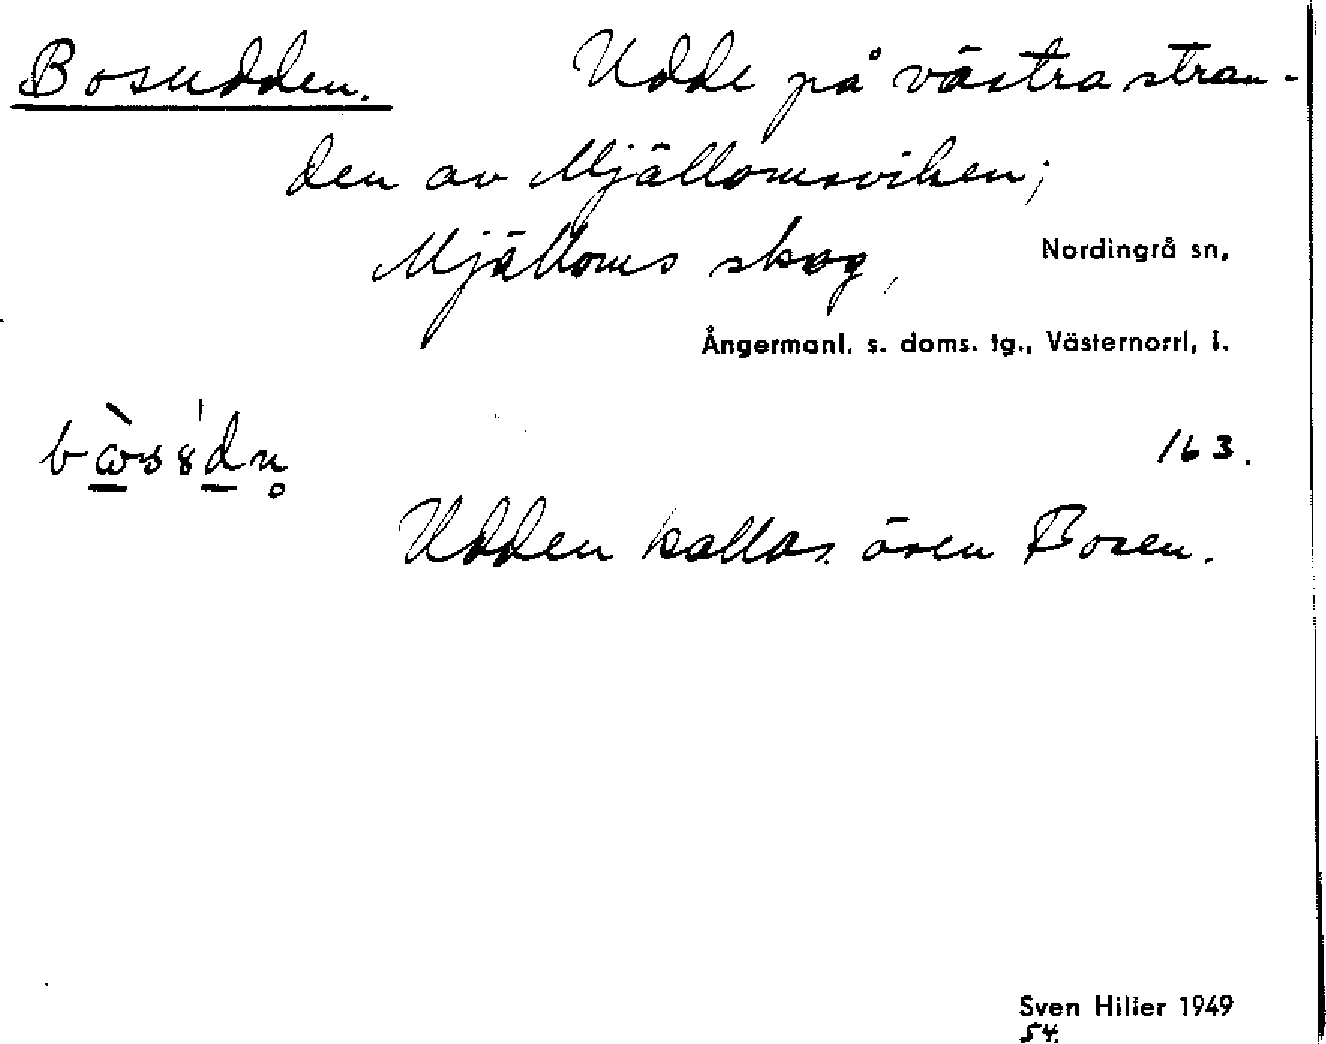 Bosudden. Udde på västra stran-
den av Mjällomsviken;
Mjälloms skog, Nordingrå sn,
Ångermanl. s. doms. tg., Västernorrl, l.
163.
Udden kallas även Bosen.
Sven Hilier 1949
54.